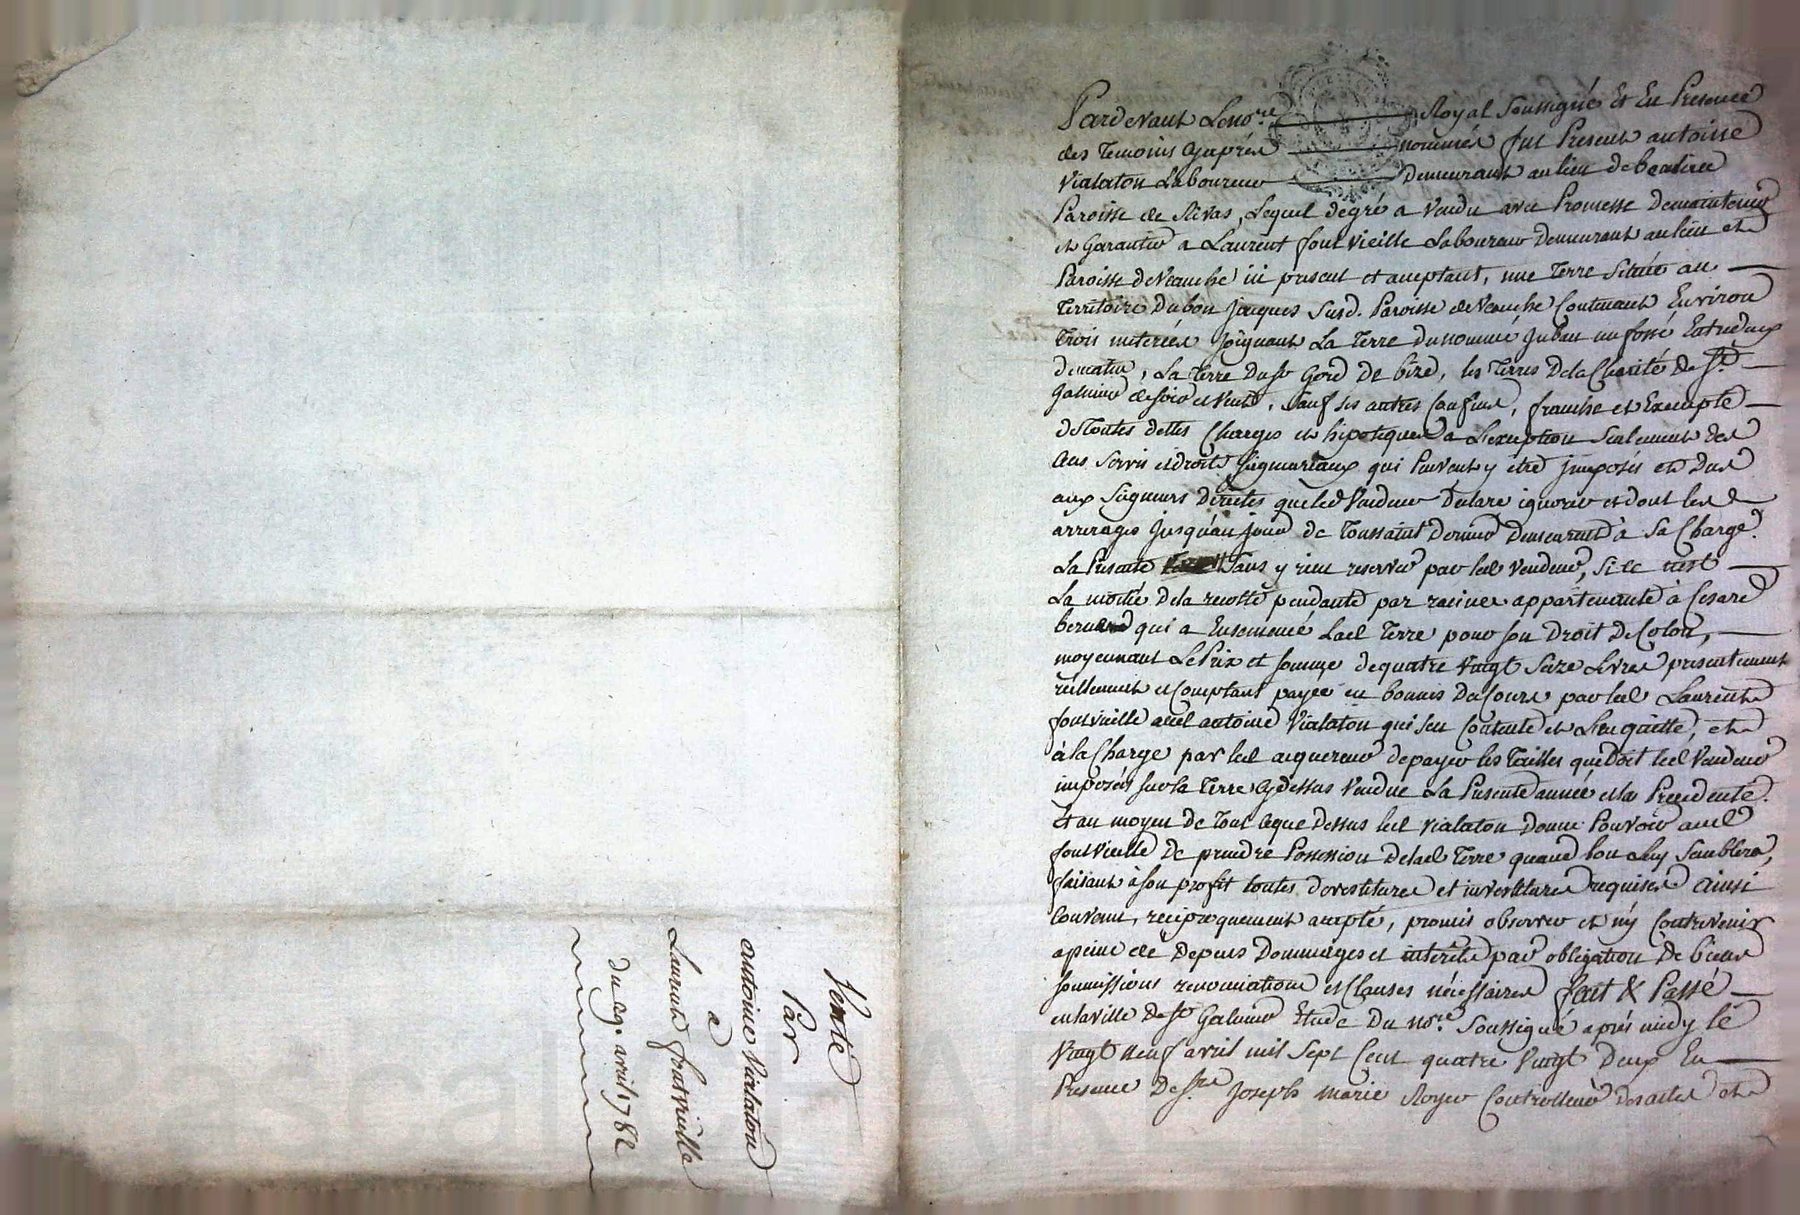 Vente
Par
antoine vialaton
a
Laurent fontvieille
du 29. avril 1782
Pardevant Le nore Royal Soussigné Et En Presence
des Temoins cyaprés nommés fut Present antoine
Vialaton Laboureur Demeurant au lieu de
Paroisse de Rivas, Lequel de gré a Vendu avec Promesse de maintenir
et Garantir a Laurent fontvieille Laboureur Demeurant au lieu et
Paroisse de Veauche ici present et acceptant, une Terre Située au
Territoire du bon jacques Susd. Paroisse de Veauche Contenant Environ
Trois meterées joignant La Terre du nommé juban un fossé Entredeux
de matin, La Terre du Sr De bize, les Terres De la Charité de St
Galmier de soir et Vent, Sauf ses autres Confins, franche et Exempte
de Toutes dettes Charges et hipoteques a L'exception Seulement des
Cens Servis et droits seigneuriaux qui Peuvent y être imposés et Dus
aux Seigneurs Directes que led Vendeur Declare ignorer et dont les
arrerages jusqu'au jour de Toussaint Dernier Demeurent à Sa Charge.
La Presente Sans y rien reserver par led vendeur, Si ce nest
La moitié De la recolte pendante par racines appartenante à Cesare
bernard qui a Ensemencé lad Terre pour son Droit De Colon,
moyennant Le Prix et somme de quatre vingt Seize Livres presentement
réellement et Comptant payée en bonnes De Cours par led Laurent
fontvieille aud antoine Vialaton qui sen Contente et L'en quitte, et
à la Charge par led acquereur de payer les Tailles que Doit led Vendeur
imposées sur la Terre cydessus Vendue La Presente année et la Precedente.
Et au moyen de Tout ceque Dessus led vialaton Donne Pouvoir aud
fontvieille De prendre Possession De lad Terre quand bon luy Semblera,
faisant à son profit toutes devestitures et investitures requises ainsi
Convenu, reciproquement accepté, promis observer et n'y Contrevenir
a peine de Depens Dommages et interêts par obligation De biens
soumissions renonciations et Clauses nécessaires fait & Passé
en la ville de St Galmier Etude Du nore. Soussigné aprés midy le
Vingt neuf avril mil Sept Cent quatre Vingt Deux En
Presence De Sre Joseph Marie Royer Controlleur des actes et